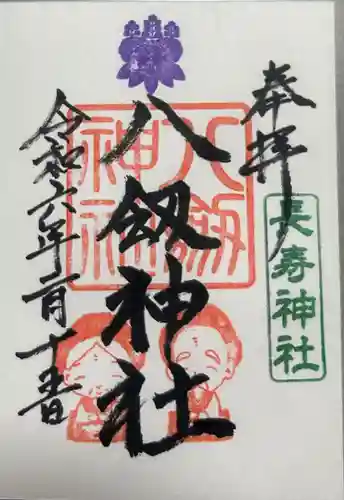 奉拝
長寿神社
八劔神社
八剱神社
令和六年二月十五日